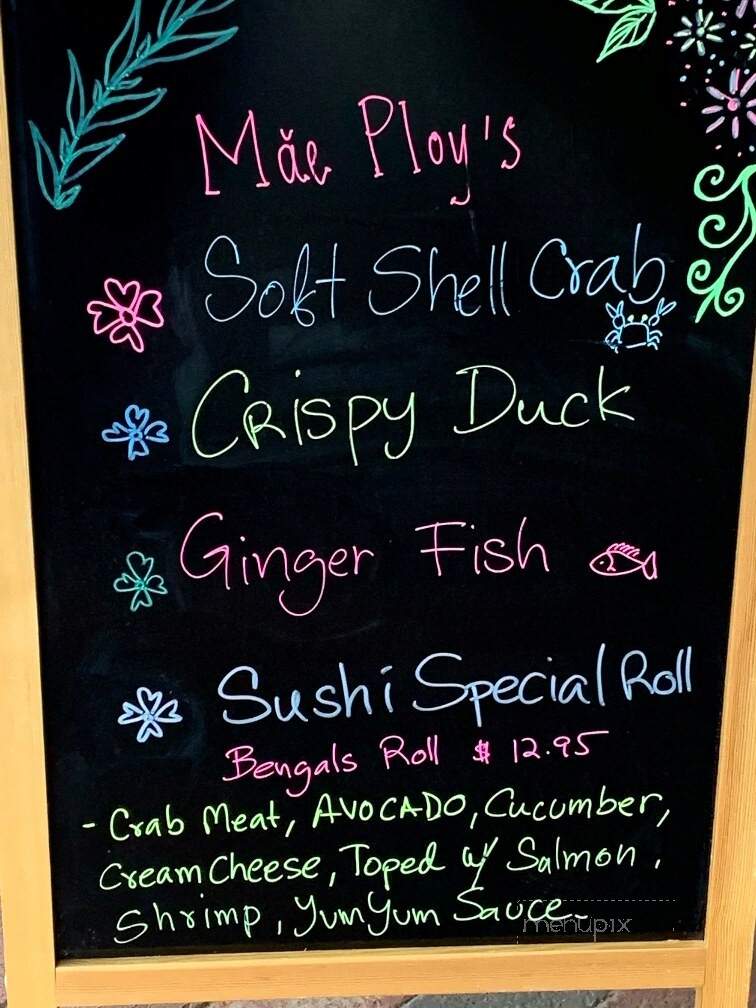 Măe Ploy's
Soft Shell Crab
Crispy Duck
Ginger Fish
Sushi Special Roll
Bengals Roll $ 12.95
- Crab Meat, AVOCADO, Cucumber,
Cream Cheese, Toped w/ Salmon,
Shrimp, Yum Yum Sauce-
menupix